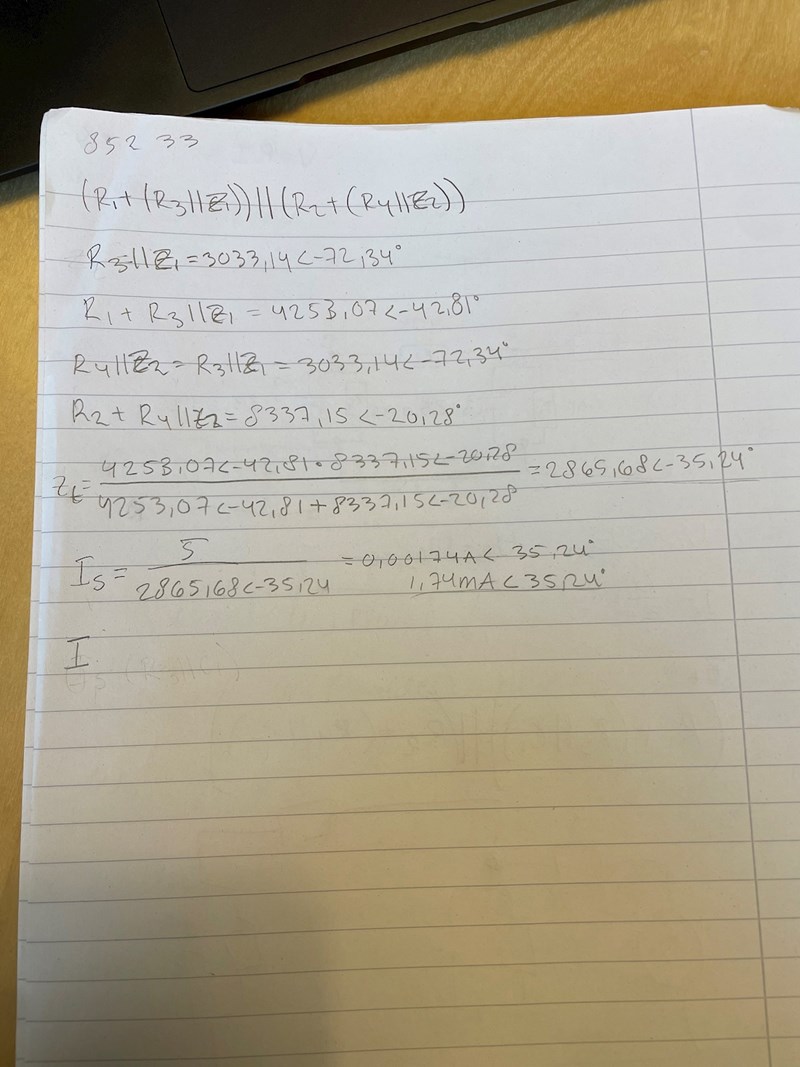 852 33
(R1+(R3||Z1))||(R2+(R4||Z2))
R3||Z1=3033,14<-72,34°
R1+R3||Z1=4253,07<-42,81°
R4||Z2=R3||Z1=3033,14<-72,34°
R2+R4||Z2=8337,15<-20,28°
Zt=4253,07<-42,81·8337,15<-20,28/4253,07<-42,81+8337,15<-20,28=2865,68<-35,24°
Is=5/2865,68<-35,24=0,00174A<35,24°
1,74mA<35,24°
I